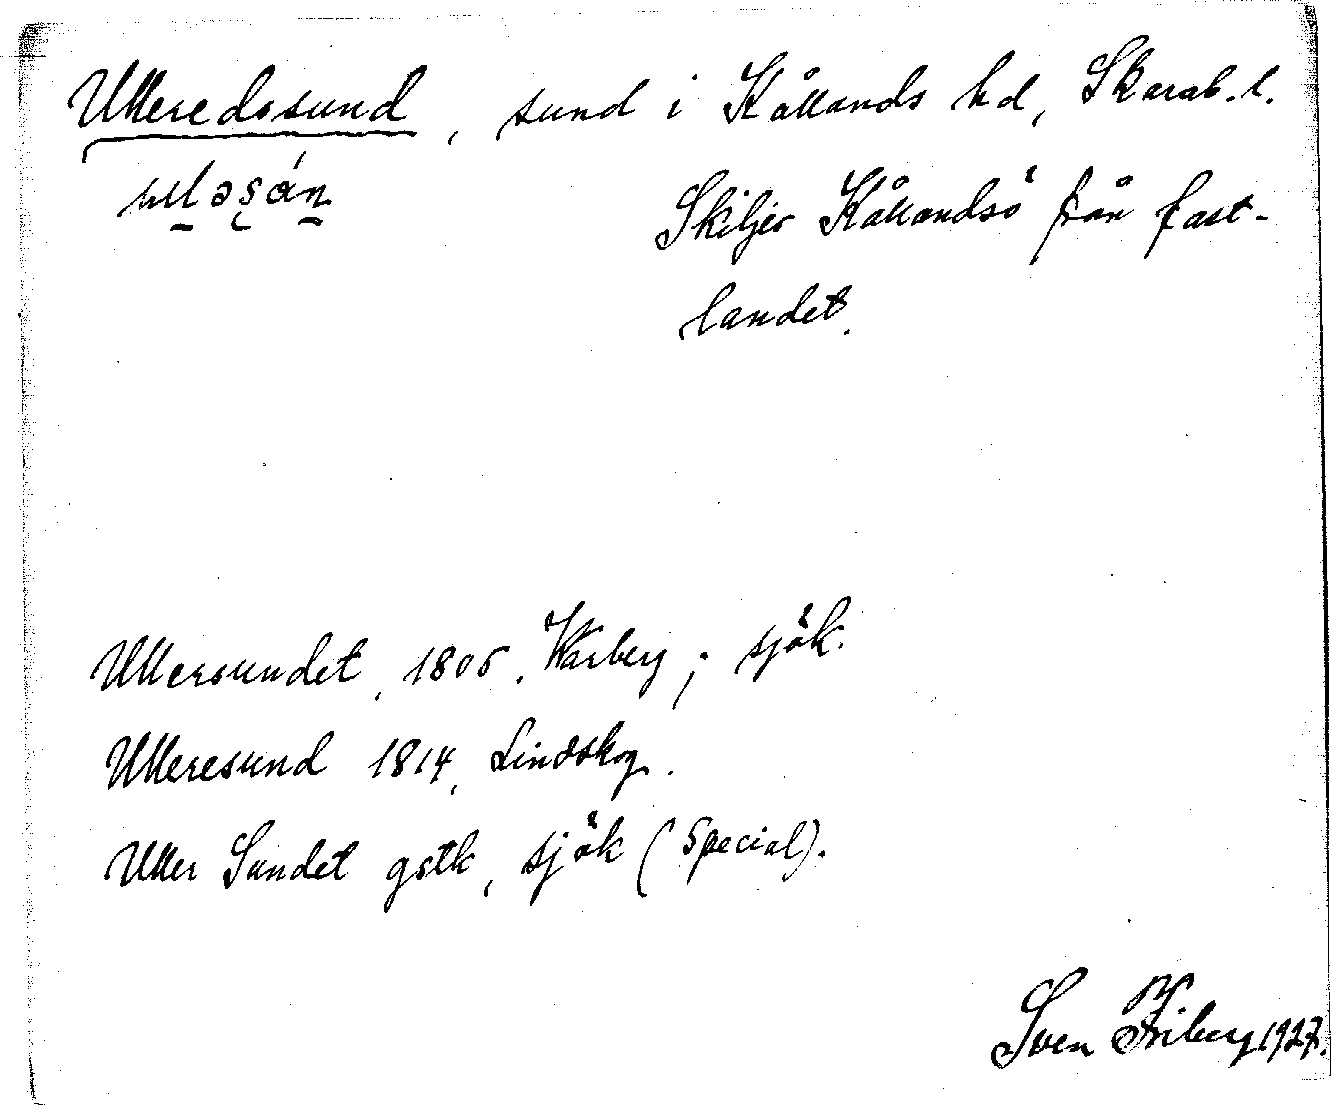 Ulleredssund, sund i Kållands hd, Skarab. l.
Skiljer Kållandsö från fast-
landet.
Ullersundet, 1806. Warberg; sjök.
Ulleresund 1814, Lindskog.
Uller Sundet gstk, sjök (Special).
Sven Friberg 1927.